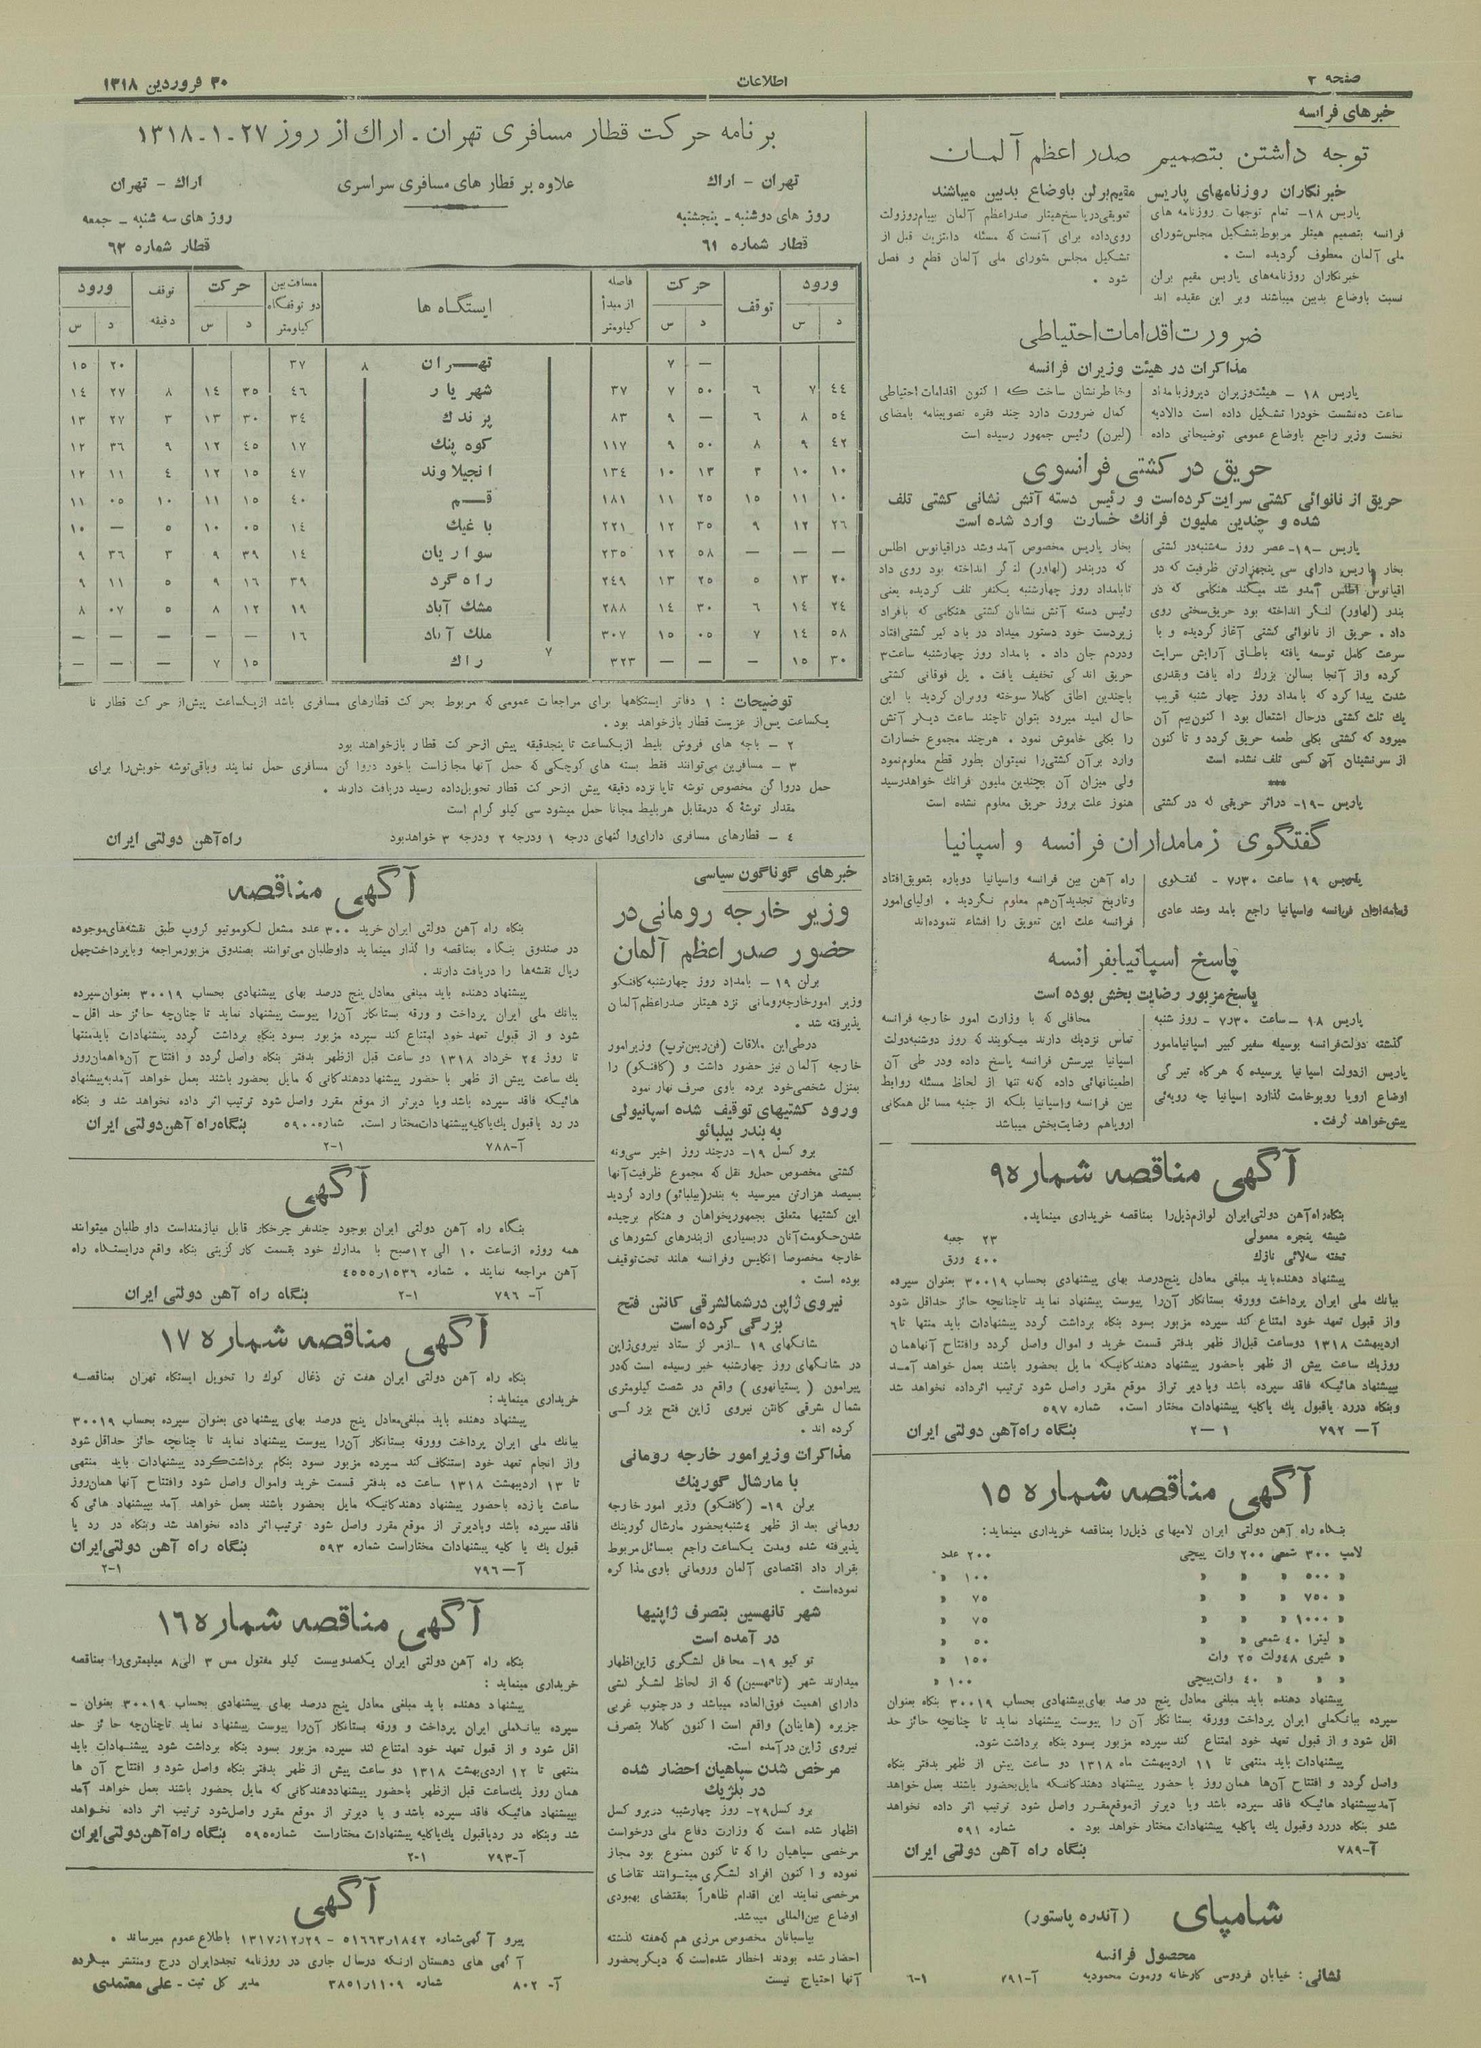 صفحه ۲
اطلاعات
۳۰ فروردین ۱۳۱۸
خبرهای فرانسه
توجه داشتن بتصمیم صدر اعظم آلمان
خبرنگاران روزنامهای پاریس مقیم برلن باوضاع بدبین میباشند
پاریس ۱۸- تمام توجهات روزنامه های
فرانسه بتصمیم هیتلر مربوط بتشکیل مجلس شورای
ملی آلمان معطوف گردیده است .
خبرنگاران روزنامه‌های پاریس مقیم برلن
نسبت باوضاع بدبین میباشند وبر این عقیده اند
تعویقی درپاسخ هیتلر صدراعظم آلمان بپیام روزولت
روی داده برای آنست که مسئله دانتزیت قبل از
تشکیل مجلس شورای ملی آلمان قطع و فصل
شود .
ضرورت اقدامات احتیاطی
مذاکرات در هیئت وزیران فرانسه
پاریس ۱۸ - هیئت وزیران دیروز بامداد
ساعت ده نشست خودرا تشکیل داده است دالادیه
نخست وزیر راجع باوضاع عمومی توضیحاتی داده
وخاطرنشان ساخت که اکنون اقدامات احتیاطی
کمال ضرورت دارد چند فقره تصویبنامه بامضای
(لبرن) رئیس جمهور رسیده است
حریق در کشتی فرانسوی
حریق از نانوائی کشتی سرایت کرده‌است و رئیس دسته آتش نشانی کشتی تلف
شده و چندین ملیون فرانك خسارت وارد شده است
پاریس -۱۹- عصر روز سه‌شنبه در کشتی
بخار پاریس دارای سی پنجهزارتن ظرفیت که در
اقیانوس اطلس آمدو شد میکند هنگامی که در
بندر (لهاور) لنگر انداخته بود حریق سختی روی
داد . حریق از نانوائی کشتی آغاز گردیده و با
سرعت کامل توسعه یافته باطاق آرایش سرایت
کرده واز آنجا بسالن بزرك راه یافت وبقدری
شدت پیدا کرد که بامداد روز چهار شنبه قریب
یك ثلث کشتی درحال اشتعال بود اکنون بیم آن
میرود که کشتی بکلی طعمه حریق گردد و تا کنون
از سرنشینان آن کسی تلف نشده است
***
پاریس -۱۹- دراثر حریقی که در کشتی
بخار پاریس مخصوص آمدوشد دراقیانوس اطلس
که دربندر (لهاور) لنگر انداخته بود روی داد
تابامداد روز چهارشنبه یکنفر تلف گردیده یعنی
رئیس دسته آتش نشانان کشتی هنگامی که بافراد
زیردست خود دستور میداد در باد گیر کشتی افتاد
ودردم جان داد . بامداد روز چهارشنبه ساعت۳
حریق اند کی تخفیف یافت . پل فوقانی کشتی
باچندین اطاق کاملا سوخته وویران گردید با این
حال امید میرود بتوان تاچند ساعت دیگر آتش
را بکلی خاموش نمود . هرچند مجموع خسارات
وارد برآن کشتی‌را نمیتوان بطور قطع معلوم نمود
ولی میزان آن بچندین ملیون فرانك خواهد رسید
هنوز علت بروز حریق معلوم نشده است
گفتگوی زمامداران فرانسه و اسپانیا
پاریس ۱۹ ساعت ۷٫۳۰ - گفتگوی
زمامداران فرانسه واسپانیا راجع بامد وشد عادی
راه آهن بین فرانسه واسپانیا دوباره بتعویق افتاد
وتاریخ تجدید آن‌هم معلوم نگردید . اولیای امور
فرانسه علت این تعویق را افشاء ننموده‌اند
پاسخ اسپانیا بفرانسه
پاسخ مزبور رضایت بخش بوده است
پاریس ۱۸ -ساعت ۷٫۳۰- روز شنبه
گذشته دولت فرانسه بوسیله سفیر کبیر اسپانیا مامور
پاریس ازدولت اسپانیا پرسیده که هرگاه تیرگی
اوضاع اروپا روبوخامت گذارد اسپانیا چه رویه‌ئی
پیش خواهد گرفت.
محافلی که با وزارت امور خارجه فرانسه
تماس نزدیك دارند میگویند که روز دوشنبه دولت
اسپانیا بپرسش فرانسه پاسخ داده ودر طی آن
اطمینانهائی داده که نه تنها از لحاظ مسئله روابط
بین فرانسه واسپانیا بلکه از جنبه مسائل همگانی
اروپاهم رضایت‌بخش میباشد
آگهی مناقصه شماره ۹
بنگاه راه آهن دولتی ایران لوازم ذیل را بمناقصه خریداری مینماید.
شیشه پنجره معمولی ۲۳ جعبه
تخته سه‌لائی نازك ۴۰۰ ورق
پیشنهاد دهنده باید مبلغی معادل پنج درصد بهای پیشنهادی بحساب ۳۰۰۱۹ بعنوان سپرده
ببانك ملی ایران پرداخت وورقه بستانکار آن‌را پیوست پیشنهاد نماید تاچنانچه حائز حداقل شود
واز قبول تعهد خود امتناع کند سپرده مزبور بسود بنگاه برداشت گردد پیشنهادات باید منتها تا۶
اردیبهشت ۱۳۱۸ دوساعت قبل از ظهر بدفتر قسمت خرید و اموال واصل گردد وافتتاح آنها همان
روز یك ساعت پیش از ظهر باحضور پیشنهاد دهندگانیکه مایل بحضور باشند بعمل خواهد آمد
بپیشنهاد هائیکه فاقد سپرده باشد ویادیر تراز موقع مقرر واصل شود ترتیب اثرداده نخواهد شد
وبنگاه دررد یاقبول یك یاکلیه پیشنهادات مختار است. شماره ۵۹۷
آ- ۷۹۲ ۱-۲ بنگاه راه آهن دولتی ایران
آگهی مناقصه شماره ۱۵
بنگاه راه آهن دولتی ایران لامپهای ذیل‌را بمناقصه خریداری مینماید:
لامپ ۳۰۰ شمعی ۲۰۰ وات پیچی ۲۰۰ عدد
» ۵۰۰ » » » ۱۰۰ »
» ۷۵۰ » » » ۷۵ »
» ۱۰۰۰ » » » ۷۵ »
» لیترا ۴۰ شمعی » » ۵۰ »
» شیری ۴۸ولت ۲۵ وات ۱۵۰ »
» » » ۴۰ وات پیچی ۱۰۰ »
پیشنهاد دهنده باید مبلغی معادل پنج در صد بهای پیشنهادی بحساب ۳۰۰۱۹ بنگاه بعنوان
سپرده ببانك‌ملی ایران پرداخت وورقه بستانکار آن را پیوست پیشنهاد نماید تا چنانچه حائز حد
اقل شود و از قبول تعهد خود امتناع کند سپرده مزبور بسود بنگاه برداشت شود.
پیشنهادات باید منتهی تا ۱۱ اردیبهشت ماه ۱۳۱۸ دو ساعت پیش از ظهر بدفتر بنگاه
واصل گردد و افتتاح آن‌ها همان روز با حضور پیشنهاد دهندگانیکه مایل بحضور باشند بعمل خواهد
آمد بپیشنهاد هائیکه فاقد سپرده باشد ویا دیرتر ازموقع مقرر واصل شود ترتیب اثر داده نخواهد
شدو بنگاه دررد وقبول یك یاکلیه پیشنهادات مختار خواهد بود . شماره ۵۹۱
آ-۷۸۹ بنگاه راه آهن دولتی ایران
شامپای (آندره پاستور)
محصول فرانسه
نشانی: خیابان فردوسی کارخانه ورموت محمودیه آ-۷۹۱ ۱-۶
برنامه حرکت قطار مسافری تهران - اراك از روز ۲۷-۱-۱۳۱۸
تهران - اراك
علاوه بر قطار های مسافری سراسری
اراك - تهران
روز های دوشنبه - پنجشنبه
روز های سه شنبه - جمعه
قطار شماره ۶۱
قطار شماره ۶۲
ورود توقف حرکت فاصله از مبدأ کیلومتر ایستگاه ها مسافت بین دو توقفگاه کیلومتر حرکت توقف دقیقه ورود
د س د س د س د س
— ۷ تهران ۸ ۳۷ ۲۰ ۱۵
۴۴ ۷ ۶ ۵۰ ۷ ۳۷ شهریار ۴۶ ۳۵ ۱۴ ۸ ۲۷ ۱۴
۵۴ ۸ ۶ — ۹ ۸۳ پرندك ۳۴ ۳۰ ۱۳ ۳ ۲۷ ۱۳
۴۲ ۹ ۸ ۵۰ ۹ ۱۱۷ کوه پنك ۱۷ ۴۵ ۱۲ ۹ ۳۶ ۱۲
۱۰ ۱۰ ۳ ۱۳ ۱۰ ۱۳۴ انجیلاوند ۴۷ ۱۵ ۱۲ ۴ ۱۱ ۱۲
۱۰ ۱۱ ۱۵ ۲۵ ۱۱ ۱۸۱ قم ۴۰ ۱۵ ۱۱ ۱۰ ۰۵ ۱۱
۲۶ ۱۲ ۹ ۳۵ ۱۲ ۲۲۱ باغیك ۱۴ ۰۵ ۱۰ ۵ — ۱۰
— — — ۵۸ ۱۲ ۲۳۵ سواریان ۱۴ ۳۹ ۹ ۳ ۳۶ ۹
۲۰ ۱۳ ۵ ۲۵ ۱۳ ۲۴۹ راه گرد ۳۹ ۱۶ ۹ ۵ ۱۱ ۹
۲۴ ۱۴ ۶ ۳۰ ۱۴ ۲۸۸ مشك آباد ۱۹ ۱۲ ۸ ۵ ۰۷ ۸
۵۸ ۱۴ ۷ ۰۵ ۱۵ ۳۰۷ ملك آباد ۱۶ — — — — —
۳۰ ۱۵ — — — ۳۲۳ راك ۷ ۱۵ ۷ — — —
توضیحات : ۱ دفاتر ایستگاهها برای مراجعات عمومی که مربوط بحرکت قطارهای مسافری باشد ازیکساعت پیش از حرکت قطار تا
یکساعت پس‌از عزیمت قطار بازخواهد بود .
۲ - باجه های فروش بلیط ازیکساعت تا پنجدقیقه پیش ازحرکت قطار بازخواهند بود
۳ - مسافرین می‌توانند فقط بسته های کوچکی که حمل آنها مجازاست باخود درواگن مسافری حمل نمایند وباقی توشه خویش‌را برای
حمل درواگن مخصوص توشه تاپانزده دقیقه پیش ازحرکت قطار تحویل داده رسید دریافت دارند .
مقدار توشهٔ که درمقابل هربلیط مجانا حمل میشود سی کیلو گرام است
۴ - قطارهای مسافری دارای‌واگنهای درجه ۱ ودرجه ۲ ودرجه ۳ خواهد بود
راه آهن دولتی ایران
خبرهای گوناگون سیاسی
وزیر خارجه رومانی در
حضور صدر اعظم آلمان
برلن ۱۹ - بامداد روز چهارشنبه کافنکو
وزیر امورخارجه رومانی نزد هیتلر صدراعظم آلمان
پذیرفته شد .
درطی این ملاقات (فن ریبن‌ترپ) وزیر امور
خارجه آلمان نیز حضور داشت و (کافنکو) را
بمنزل شخصی خود برده باوی صرف نهار نمود
ورود کشتیهای توقیف شده اسپانیولی
به بندر بیلبائو
برو کسل ۱۹- درچند روز اخیر سی‌ونه
کشتی مخصوص حمل‌و نقل که مجموع ظرفیت آنها
بسیصد هزارتن میرسید به بندر(بیلبائو) وارد گردید
این کشتیها متعلق بجمهوریخواهان و هنگام برچیده
شدن حکومت آنان دربسیاری از بندرهای کشورهای
خارجه مخصوصا انگلیس وفرانسه هلند تحت توقیف
بوده است .
نیروی ژاپن درشمالشرقی کانتن فتح
بزرگی کرده است
شانگهای ۱۹ -ازمر کز ستاد نیروی ژاپن
در شانگهای روز چهارشنبه خبر رسیده است که در
پیرامون (پستیانهوی) واقع در شصت کیلومتری
شمال شرقی کانتن نیروی ژاپن فتح بزرگی
کرده اند .
مذاکرات وزیر امور خارجه رومانی
با مارشال گورینك
برلن ۱۹- (کافنکو) وزیر امور خارجه
رومانی بعد از ظهر ۴شنبه بحضور مارشال گورینك
پذیرفته شده ومدت یکساعت راجع بمسائل مربوط
بقرار داد اقتصادی آلمان ورومانی باوی مذاکره
نموده‌است .
شهر تانهسین بتصرف ژاپنیها
در آمده است
توکیو ۱۹- محافل لشگری ژاپن اظهار
میدارند شهر (تانهسین) که از لحاظ لشگر کشی
دارای اهمیت فوق‌العاده میباشد و درجنوب غربی
جزیره (هاینان) واقع است اکنون کاملا بتصرف
نیروی ژاپن درآمده است.
مرخص شدن سپاهیان احضار شده
در بلژیك
برو کسل ۲۹- روز چهارشنبه دربرو کسل
اظهار شده است که وزارت دفاع ملی درخواست
مرخصی سپاهیان را که تا کنون ممنوع بود مجاز
نموده و اکنون افراد لشگری میتوانند تقاضای
مرخصی نمایند این اقدام ظاهراً بمقتضای بهبودی
اوضاع بین‌المللی میباشد.
پیاسبانان مخصوص مرزی هم که هفته گذشته
احضار شده بودند اخطار شده است که دیگر بحضور
آنها احتیاج نیست
آگهی مناقصه
بنگاه راه آهن دولتی ایران خرید ۳۰۰ عدد مشعل لکوموتیو کروپ طبق نقشه‌های موجوده
در صندوق بنگاه بمناقصه واگذار مینماید داوطلبان می‌توانند بصندوق مزبور مراجعه وباپرداخت چهل
ریال نقشه‌ها را دریافت دارند .
پیشنهاد دهنده باید مبلغی معادل پنج درصد بهای پیشنهادی بحساب ۳۰۰۱۹ بعنوان سپرده
ببانك ملی ایران پرداخت و ورقه بستانکار آن‌را پیوست پیشنهاد نماید تا چنان‌چه حائز حد اقل -
شود و از قبول تعهد خود امتناع کند سپرده مزبور بسود بنگاه برداشت گردد پیشنهادات باید منتها
تا روز ۲۴ خرداد ۱۳۱۸ دو ساعت قبل ازظهر بدفتر بنگاه واصل گردد و افتتاح آن‌ها همان روز
یك ساعت پیش از ظهر با حضور پیشنهاد دهندگانی که مایل بحضور باشند بعمل خواهد آمد به پیشنهاد
هائیکه فاقد سپرده باشد ویا دیرتر از موقع مقرر واصل شود ترتیب اثر داده نخواهد شد و بنگاه
در رد یا قبول یك یا کلیه پیشنهادات مختار است. شماره ۵۹۰۰ بنگاه راه آهن دولتی ایران
آ-۷۸۸ ۱-۲
آگهی
بنگاه راه آهن دولتی ایران بوجود چندنفر چرخکار قابل نیازمند است داو طلبان میتوانند
همه روزه ازساعت ۱۰ الی ۱۲صبح با مدارك خود بقسمت کارگزینی بنگاه واقع درایستگاه راه
آهن مراجعه نمایند . شماره ۴۵۵۵٫۱۵۳۶
آ- ۷۹۶ ۱-۲ بنگاه راه آهن دولتی ایران
آگهی مناقصه شماره ۱۷
بنگاه راه آهن دولتی ایران هفت تن ذغال کوك را تحویل ایستگاه تهران بمناقصه
خریداری مینماید:
پیشنهاد دهنده باید مبلغی معادل پنج درصد بهای پیشنهادی بعنوان سپرده بحساب ۳۰۰۱۹
ببانك ملی ایران پرداخت وورقه بستانکار آن‌را پیوست پیشنهاد نماید تا چنانچه حائز حداقل شود
واز انجام تعهد خود استنکاف کند سپرده مزبور بسود بنگاه برداشت گردد پیشنهادات باید منتهی
تا ۱۳ اردیبهشت ۱۳۱۸ ساعت ده بدفتر قسمت خرید واموال واصل شود وافتتاح آنها همان روز
ساعت یازده باحضور پیشنهاد دهندگانیکه مایل بحضور باشند بعمل خواهد آمد بپیشنهاد هائی که
فاقد سپرده باشد ویادیرتر از موقع مقرر واصل شود ترتیب اثر داده نخواهد شد وبنگاه در رد یا
قبول یك یا کلیه پیشنهادات مختاراست شماره ۵۹۳ بنگاه راه آهن دولتی ایران
آ-۷۹۶ ۱-۲
آگهی مناقصه شماره ۱۶
بنگاه راه آهن دولتی ایران یکصدوبیست کیلو مفتول مس ۳ الی ۸ میلیمتری را بمناقصه
خریداری مینماید :
پیشنهاد دهنده باید مبلغی معادل پنج درصد بهای پیشنهادی بحساب ۳۰۰۱۹ بعنوان -
سپرده ببانك‌ملی ایران پرداخت و ورقه بستانکار آن‌را پیوست پیشنهاد نماید تاچنان‌چه حائز حد
اقل شود و از قبول تعهد خود امتناع کند سپرده مزبور بسود بنگاه برداشت شود پیشنهادات باید
منتهی تا ۱۲ اردیبهشت ۱۳۱۸ دو ساعت پیش از ظهر بدفتر بنگاه واصل شود و افتتاح آن ها
همان روز یك‌ساعت قبل ازظهر باحضور پیشنهاد دهندگانی که مایل بحضور باشند بعمل خواهد آمد
بپیشنهاد هائیکه فاقد سپرده باشد و یا دیرتر از موقع مقرر واصل شود ترتیب اثر داده نخواهد
شد وبنگاه در ردیاقبول یك یاکلیه پیشنهادات مختاراست شماره ۵۹۵ بنگاه راه آهن دولتی ایران
آ-۷۹۳ ۱-۲
آگهی
پیرو آگهی شماره ۵۱۶۶۳٫۱۸۴۲ - ۱۳۱۷٫۱۲٫۲۹ باطلاع عموم میرساند .
آگهی های دهستان ارنگه درسال جاری در روزنامه تجدد ایران درج ومنتشر میگردد
آ- ۸۰۲ شماره ۳۸۵۱٫۱۱۰۹ مدیر کل ثبت - علی معتمدی